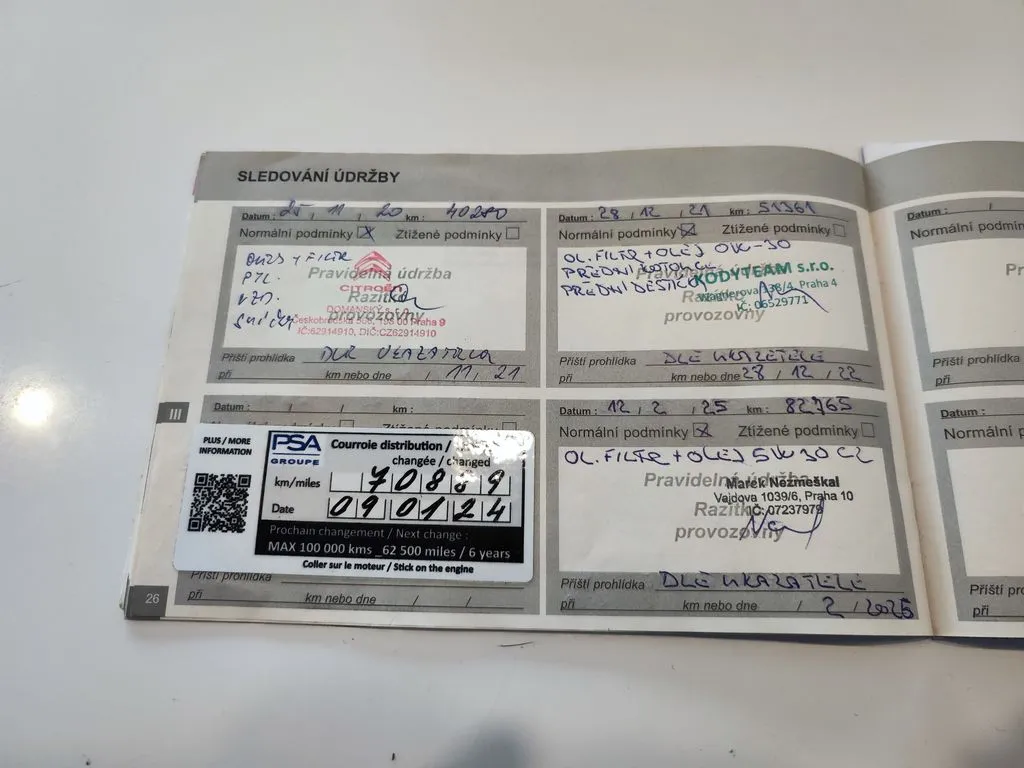 SLEDOVÁNÍ ÚDRŽBY
Datum : 25 , 11 , 20 km : 40280
Normální podmínky X Ztížené podmínky
FILTR
PYL.
VZD.
Pravidelná údržba
CITROËN
Razítko
DOMANSKÝ
provozovny
Českobrodská 190 00 Praha 9
IČ:62914910, DIČ:CZ62914910
Příští prohlídka DLE UKAZATELE
při km nebo dne / 11 / 21
Datum : 28 , 12 , 21 km : 51361
Normální podmínky X Ztížené podmínky
OL. FILTR + OLEJ 0W-30
PŘEDNÍ KOTOUČE
PŘEDNÍ DESTIČKY
Pravidelná údržba
KODYTEAM s.r.o.
Praha 4
IČ: 06529771
Razítko
provozovny
Příští prohlídka DLE UKAZATELE
při km nebo dne 28 / 12 / 22
Datum : / / km :
PLUS / MORE
INFORMATION
PSA
GROUPE
Courroie distribution /
changée / changed
km/miles 70889
Date 090124
Prochain changement / Next change :
MAX 100 000 kms _62 500 miles / 6 years
Coller sur le moteur / Stick on the engine
Příští prohlídka
při km nebo dne / /
Datum : 12 , 2 , 25 km : 82765
Normální podmínky X Ztížené podmínky
OL. FILTR + OLEJ 5W30 C2
Pravidelná údržba
Marek Nezmeškal
Vajdova 1039/6, Praha 10
IČ: 07237979
Razítko
provozovny
Příští prohlídka DLE UKAZATELE
při km nebo dne / 2 / 2026
III
26
Datum : /
Normální podmínky
Příští
při
Datum :
Normální
Příští
při